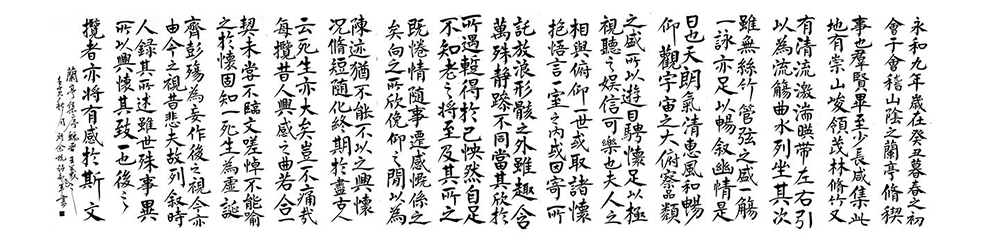 永和九年歲在癸丑暮春之初
會于會稽山陰之蘭亭脩稧
事也群賢畢至少長咸集此
地有崇山峻領茂林脩竹又
有清流激湍暎帶左右引
以為流觴曲水列坐其次
雖無絲竹管弦之盛一觴
一詠亦足以暢叙幽情是
日也天朗氣清惠風和暢
仰觀宇宙之大俯察品類
之盛所以遊目騁懷足以極
視聽之娛信可樂也夫人之
相與俯仰一世或取諸懷
抱悟言一室之內或因寄所
託放浪形骸之外雖趣舍
萬殊静躁不同當其欣於
所遇蹔得於己怏然自足
不知老之將至及其所之
既惓情隨事遷感慨係之
矣向之所欣俛仰之間以為
陳迹猶不能不以之興懷
況脩短隨化終期於盡古人
云死生亦大矣豈不痛哉
每攬昔人興感之由若合一
契未嘗不臨文嗟悼不能喻
之於懷固知一死生為虛誕
齊彭殤為妄作後之視今亦
由今之視昔悲夫故列叙時
人録其所述雖世殊事異
所以興懷其致一也後之
攬者亦將有感於斯文
蘭亭集序